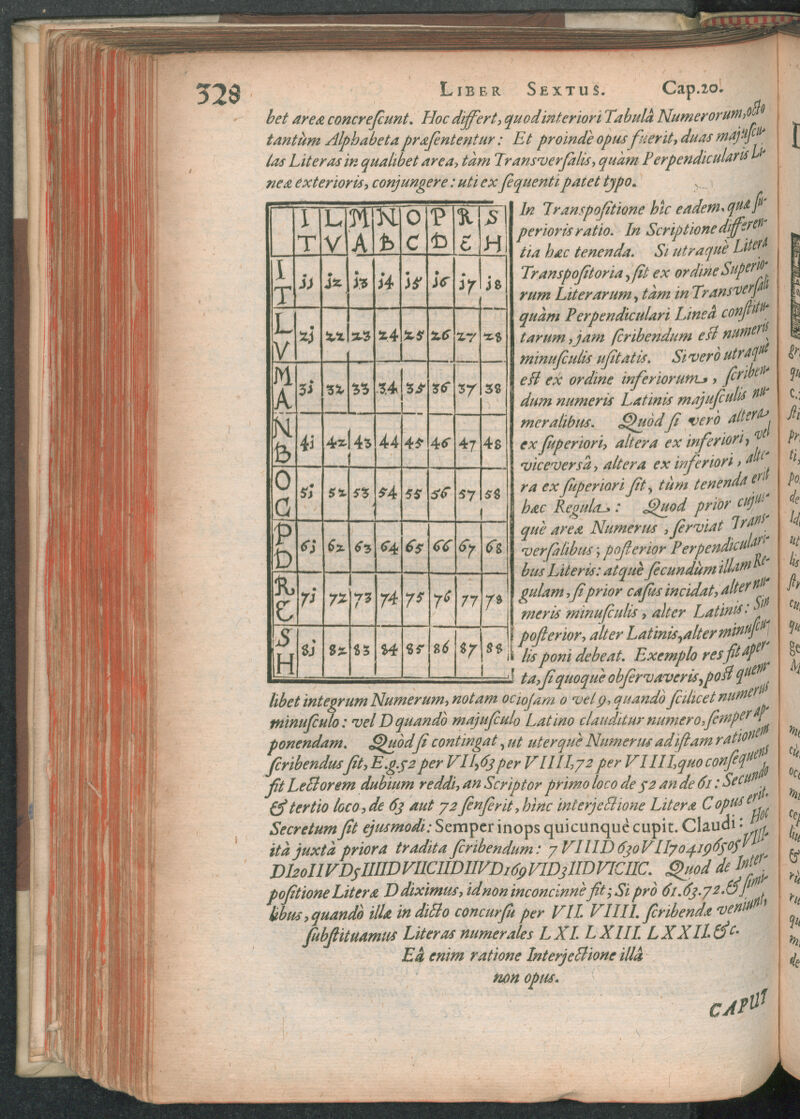 328 LIBER SEXTUS. Cap.20.
bet areæ concrescunt. Hoc differt, quod interiori Tabulâ Numerorum, octo
tantùm Alphabeta præsententur : Et proindè opus fuerit, duas majuscu-
las Literas in qualibet area, tàm Transversalis, quàm Perpendicularis Li-
neæ exterioris, conjungere : uti ex sequenti patet typo.
I L M N O P R S
T V A B C D E H
I T 11 12 13 14 15 16 17 18
L V 21 22 23 24 25 26 27 28
M A 31 32 33 34 35 36 37 38
N B 41 42 43 44 45 46 47 48
O C 51 52 53 54 55 56 57 58
P D 61 62 63 64 65 66 67 68
R E 71 72 73 74 75 76 77 78
S H 81 82 83 84 85 86 87 88
In Transpositione hîc eadem, quæ su-
perioris ratio. In Scriptione differen-
tia hæc tenenda. Si utraquè Litera
Transpositoria, sit ex ordine Superio-
rum Literarum, tàm in Transversali
quàm Perpendiculari Lineâ constitu-
tarum, jam scribendum est numeris
minusculis usitatis. Si verò utraquè
est ex ordine inferiorum, scriben-
dum numeris Latinis majusculis nu-
meralibus. Quòd si verò altera
ex superiori, altera ex inferiori, vel
viceversâ, altera ex inferiori, alte-
ra ex superiori sit, tùm tenenda erit
hæc Regula : Quod prior cujus-
què areæ Numerus, serviat Trans-
versalibus ; posterior Perpendiculari-
bus Literis : atquè secundùm illam Re-
gulam, si prior casus incidat, alter nu-
meris minusculis, alter Latinis : Sin
posterior, alter Latinis, alter minuscu-
lis poni debeat. Exemplo res fit aper-
ta, si quoquè observaveris, post quem-
libet integrum Numerum, notam ociosam 0 vel 9, quandò scilicet numerus
minusculo : vel D quandò majusculo Latino clauditur numero, semper ap-
ponendam. Quòd si contingat, ut uterquè Numerus ad istam rationem
scribendus sit, E.g. 52 per VII, 63 per VIIII, 72 per VIIII, quo consequens
fit Lectorem dubium reddi, an Scriptor primo loco de 52 an de 61 : Secundo
& tertio loco, de 63 aut 72 senserit, hinc interjectione Literæ C opus erit.
Secretum sit ejusmodi : Semper inops quicunquè cupit. Claudi : Hoc
ità juxtà priora tradita scribendum : 7 VIIID 630VII704196505VIII.
DI20IIVD5IIIIDVIICIIDIIVDI69VID3IIDVICIIC. Quod de Inter-
positione Literæ D diximus, id non inconcinnè fit ; Si prò 61.63.72. & simi-
libus, quandò illæ in dicto concursu per VII. VIIII. scribendæ veniunt,
substituamus Literas numerales LXI. LXIII. LXXII. &c.
Eâ enim ratione Interjectione illâ
non opus.
CAPUT